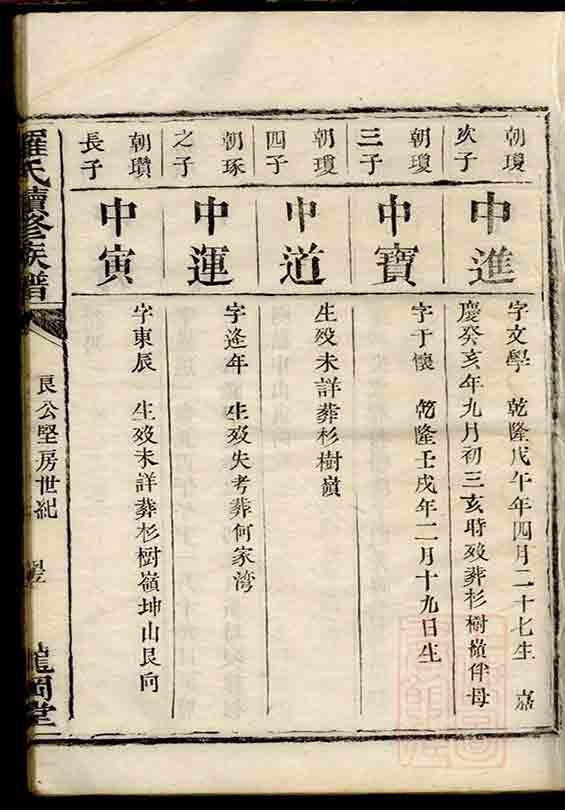 朝瓊
次子
中進
字文學 乾隆戊午年四月二十七生 嘉
慶癸亥年九月初三亥時歿葬杉樹嶺伴母
朝瓊
三子
中寶
字于懷 乾隆壬戌年二月十九日生
朝瓊
四子
中道
生歿未詳葬杉樹嶺
朝琢
之子
中運
字逢年 生歿失考葬何家湾
朝瓚
長子
中寅
字東辰 生歿未詳葬杉樹嶺坤山艮向
羅氏續修族譜
艮公堅房世紀
龍岡堂